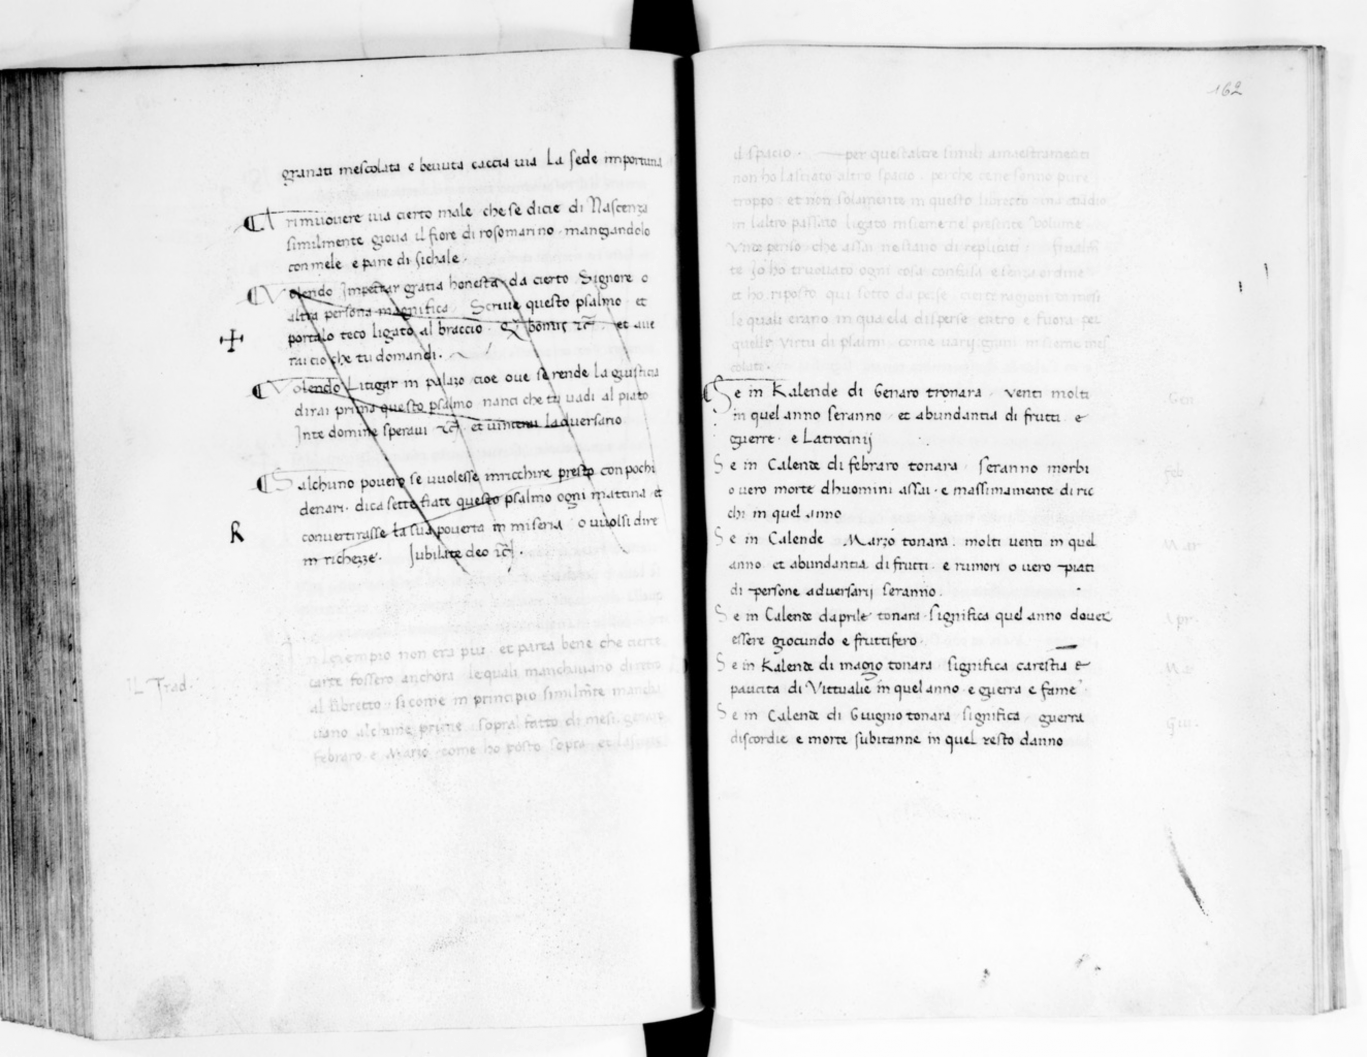 granati mescolata e bevuta caccia via La sede importuna
A rimuovere via cierto male che se dicie di Nascenza
similmente giova il fiore di rosomarino mangandolo
con mele e pane di sichale.
Volendo Impetrar gratia honesta da cierto Signore o
altra persona magnifica Scrive questo psalmo et
portalo teco ligato al braccio et ave
rai cio che tu domandi.
Volendo Litigar in palazo cioe ove se rende la giusticia
dirai prima questo psalmo nanci che tu vadi al piato
Inte domine speravi et Ladversario
S alchuno povero se vuolesse inricchire presto con pochi
denari. dica sette fiate questo psalmo ogni mattina et
R
convertirasse la sua poverta in miseria o vuolsi dire
in richezze. Jubilate deo
Il Trad.
non era piu. et parea bene che cierte
carte fossero anchora lequali manchavano
al libretto si come in principio
prime sopra fatto di mesi
febraro e Marzo come ho posto sopra et
162
il spacio. per questaltre simili amaestramenti
non ho lasciato altro spacio perche
troppo et non solamente in questo libretto
in laltro passato ligato insieme nel presente volume
che assai ne stano di replicati
te Jo ho truovato ogni cosa confusa e senza ordine
et ho riposto qui sotto da perse cierte ragioni
le quali erano in qua ela disperse entro e fuora per
quelle virtu di psalmi come insieme
colate.
Se in Kalende di Genaro tronara venti molti
Gen
in quel anno seranno et abundantia di frutti e
guerre e Latrocinij
Se in Calende di febraro tonara seranno morbi
feb
o vero morte dhuomini assai e massimamente di ric
chi in quel anno
Se in Calende Marzo tonara: molti venti in quel
Mar
anno et abundantia di frutti e rumori o vero piati
di persone adversarij seranno.
Se in Calende daprile tonara significa quel anno dover
Apr
essere giocundo e fruttifero.
Se in Kalende di magio tonara significa caristia e
Ma
paucita di Vittualie in quel anno e guerra e fame.
Se in Calende di Giugnio tonara significa guerra
Giu.
discordie e morte subitanne in quel resto danno